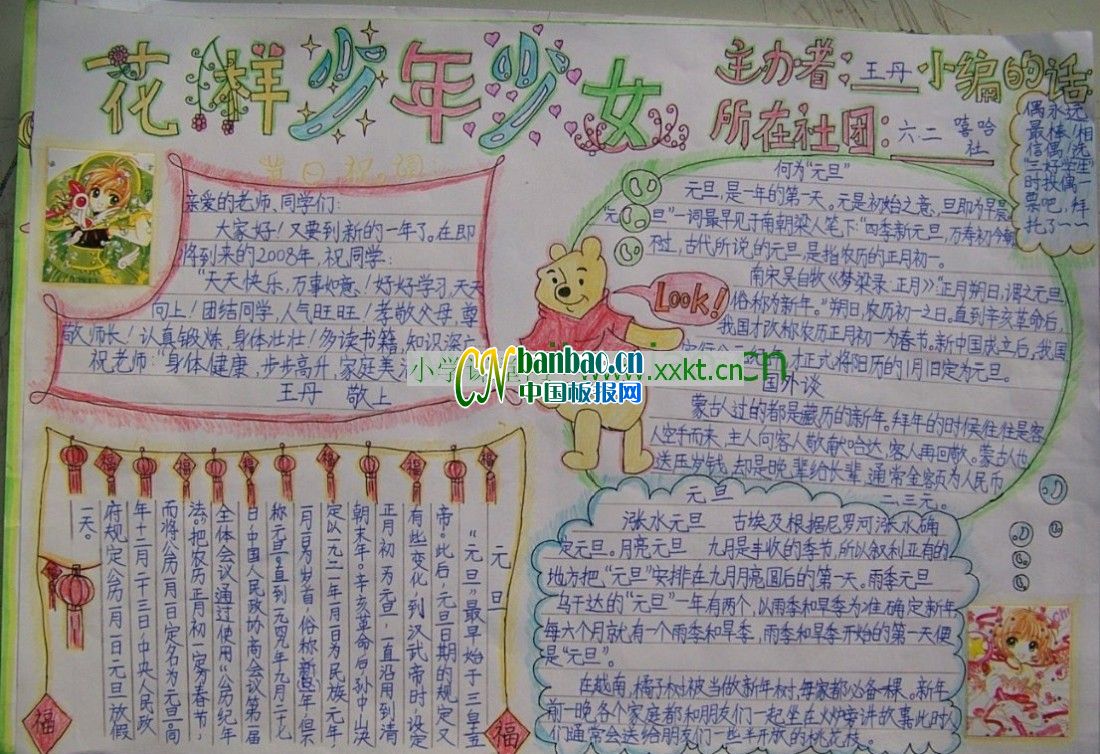 花样少年少女
主办者：王丹
所在社团：六二 嘻哈社
小编的话
偶永远
最棒！相
信偶！选
"三好学生"
时投偶一
票吧，拜
托了~~
节日祝词
亲爱的老师、同学们：
大家好！又要到新的一年了。在即
将到来的2008年，祝同学：
"天天快乐，万事如意！好好学习，天天
向上！团结同学，人气旺旺！孝敬父母，尊
敬师长！认真锻炼，身体壮壮！多读书籍，知识深
祝老师："身体健康，步步高升，家庭美
王丹 敬上
何为"元旦"
元旦，是一年的第一天。元是初始之意，旦即为早晨
"元旦"一词最早见于南朝梁人笔下："四季新元旦，万寿初今朝
不过，古代所说的元旦，是指农历的正月初一。
南宋吴自牧《梦梁录·正月》"正月朔日，谓之元旦
俗称为新年。"朔日，农历初一之日。直到辛亥革命后，
我国才改称农历正月初一为春节。新中国成立后，我国
才正式将阳历的1月1日定为元旦。
国外谈
蒙古人过的都是藏历的新年。拜年的时候往往是客
人空手而来，主人向客人敬献哈达，客人再回敬。蒙古人也
送压岁钱，却是晚辈给长辈，通常金客页为人民币
二、三元。
Look!
小学课
www.xxkt.cn
CN banbao.cn
中国板报网
福
福
福
福
福
福
福
元旦
"元旦"最早始于三皇五
帝。此后，元旦日期的规定又
有些变化，到汉武帝时，设定
正月初一为元旦，一直沿用到清
朝末年。辛亥革命后，孙中山决
定以一九一二年一月一日为民族元年
一月一日为岁首，俗称新年，但不
称元旦。直到一九四九年九月二十七
日，中国人民政协商会议第一届
全体会议，通过使用"公历纪年
法。"把农历正月初一定为春节，
而将公历一月一日定名为元旦。高
年十二月二十三日，中央人民政
府规定公历一月一日元旦放假
一天。
元旦
涨水元旦 古埃及根据尼罗河涨水确
定元旦。月亮元旦 九月是丰收的季节，所以叙利亚有的
地方把"元旦"安排在九月月亮圆后的第一天。雨季元旦
乌干达的"元旦"一年有两个，以雨季和旱季为准确定新年
每六个月就有一个雨季和旱季，雨季和旱季开始的第一天便
是"元旦"。
在越南，橘子树被当做新年树，每家都必备一棵。新年
前一晚各个家庭都和朋友们一起坐在火炉旁讲故事此时人
们通常会送给朋友们一些半开放的桃花枝。